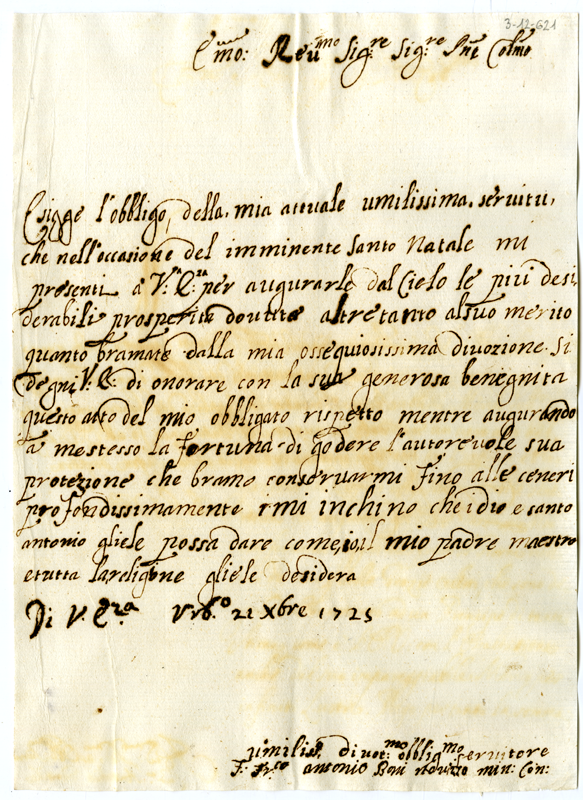 3-12-621
E.mo: Reu.mo Sig.re Sig.re Pne Colmo
Esigge l'obbligo, della, mia attuale umilissima, seruitu,
che nell'occasione del imminente Santo Natale mi
presenti a V.ra E.za per augurarle dal Cielo le più desi
derabili prosperità douute altretanto al suo merito
quanto bramate dalla mia ossequiosissima diuozione. Si
degni V. E. di onorare con la sua generosa benegnita
questo atto del mio obbligato rispetto mentre augurando
a mestesso la fortuna di godere l'autoreuole sua
protezione che bramo conseruarmi fino alle ceneri
profondissimamente mi inchino che idio e santo
antonio gliele possa dare come io, il mio padre maestro
e tutta la religione gliele desidera
Di V. E.za Vrb.o 21 Xbre 1725
umiliss. diuot.mo obblig.mo seruitore
F. Fr.co antonio Boni nouizzo min: Con: